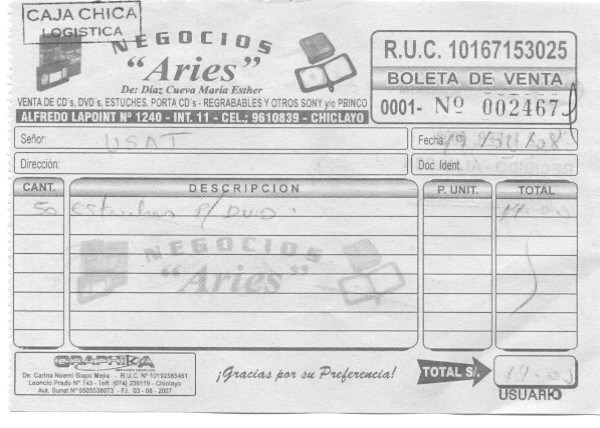 CAJA CHICA
LOGISTICA
NEGOCIOS
"Aries"
De: Díaz Cueva María Esther
VENTA DE CD's, DVD's, ESTUCHES, PORTA CD's - REGRABABLES Y OTROS SONY y/o PRINCO
ALFREDO LAPOINT Nº 1240 - INT. 11 - CEL.; 9610839 - CHICLAYO
R.U.C. 10167153025
BOLETA DE VENTA
0001- Nº 002467
Señor: USAT
Fecha: 19/ /08
Dirección:
Doc. Ident.
CANT. DESCRIPCION P. UNIT. TOTAL
50 estuches P/ DVD
NEGOCIOS
"Aries"
GRAPHIKA
De. Carina Noemi Siapo Mejia - R.U.C. Nº 10192585461
Leoncio Prado Nº 745 - Telf. (074) 236119 - Chiclayo
Aut. Sunat Nº 0505538073 - F.I. 03 - 08 - 2007
¡Gracias por su Preferencia!
TOTAL S/.
USUARIO